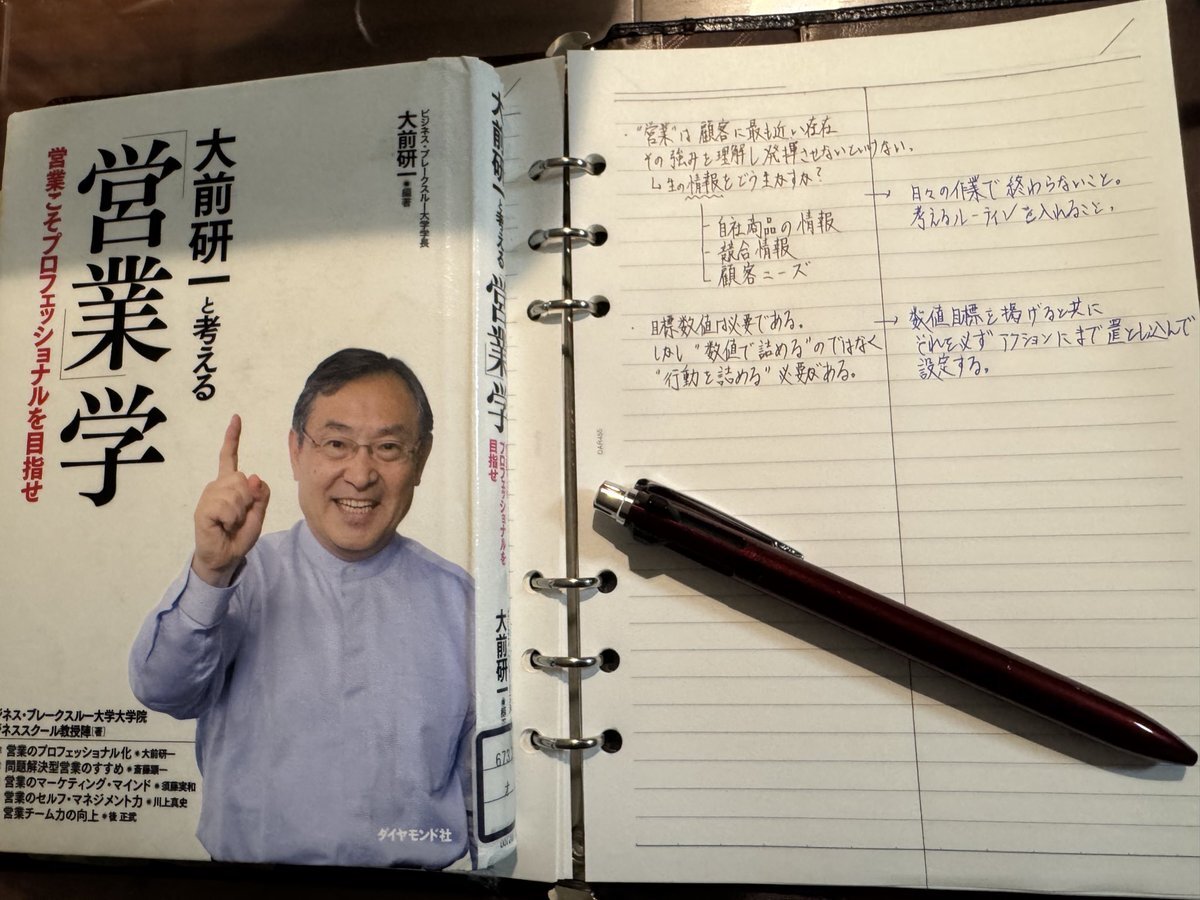 大前研一と考える
「営業」学
営業こそプロフェッショナルを目指せ
ビジネス・ブレークスルー大学学長
大前研一●編著
ジネス・ブレークスルー大学大学院
ジネススクール教授陣[著]
営業のプロフェッショナル化●大前研一
問題解決型営業のすすめ●斎藤顕一
営業のマーケティング・マインド●須藤実和
営業のセルフ・マネジメント力●川上真史
営業チーム力の向上●後 正武
ダイヤモンド社
大前研一と考える 営業学
プロフェッショナルを
目指せ
大前研一●編著
673.
オ
・"営業"は顧客に最も近い存在
その強みを理解し発揮させないといけない。
↳生の情報をどう生かすか?
自社商品の情報
競合情報
顧客ニーズ
→ 日々の作業で終わらないこと。
考えるルーティンを入れること。
・目標数値は必要である。
しかし"数値で詰める"のではなく
"行動を詰める"必要がある。
→ 数値目標を掲げると共に
それを必ずアクションにまで落とし込んで
設定する。
DAR455